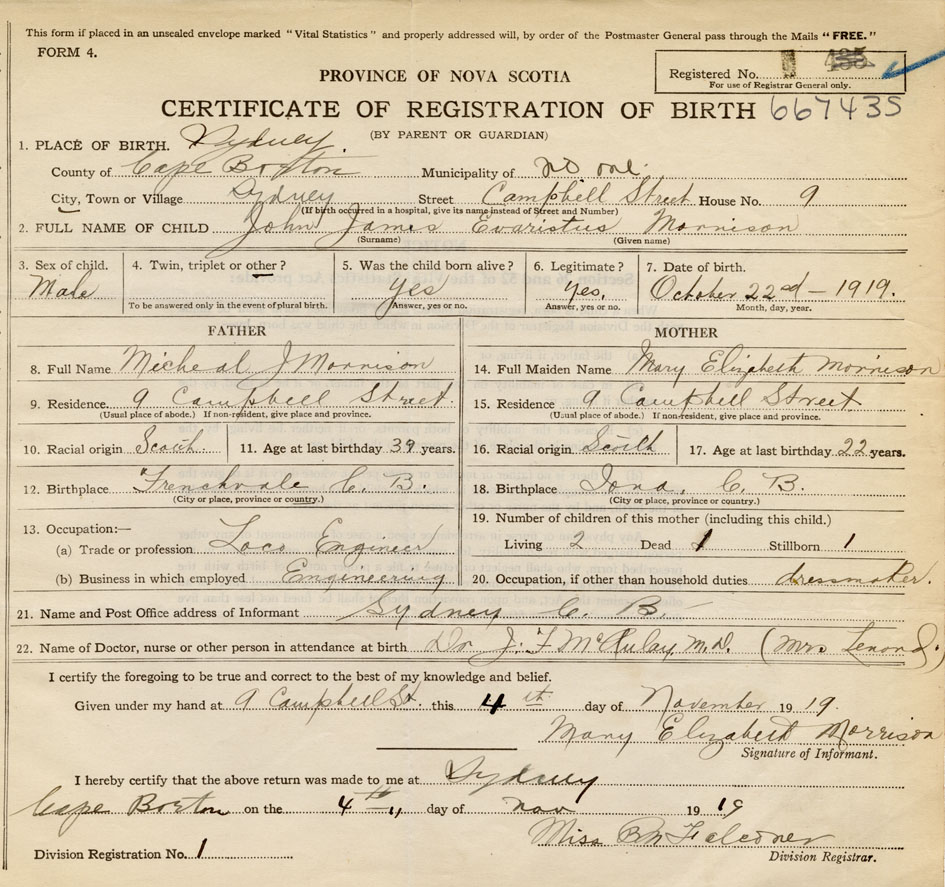 This form if placed in an unsealed envelope marked "Vital Statistics" and properly addressed will, by order of the Postmaster General pass through the Mails "FREE."
FORM 4.
PROVINCE OF NOVA SCOTIA
Registered No. 435
For use of Registrar General only.
CERTIFICATE OF REGISTRATION OF BIRTH 667435
(BY PARENT OR GUARDIAN)
1. PLACE OF BIRTH. Sydney.
County of Cape Breton Municipality of no one.
City, Town or Village Sydney Street Campbell Street House No. 9
(If birth occurred in a hospital, give its name instead of Street and Number)
2. FULL NAME OF CHILD John James Evaristus Morrison
(Surname) (Given name)
3. Sex of child. 4. Twin, triplet or other? 5. Was the child born alive? 6. Legitimate? 7. Date of birth.
Male yes yes. October 22nd - 1919.
To be answered only in the event of plural birth. Answer, yes or no. Answer, yes or no. Month, day, year.
FATHER MOTHER
8. Full Name Micheal J Morrison 14. Full Maiden Name Mary Elizabeth Morrison
9. Residence 9 Campbell Street. 15. Residence 9 Campbell Street
(Usual place of abode.) If non-resident, give place and province. (Usual place of abode.) If non-resident, give place and province.
10. Racial origin Scoth. 11. Age at last birthday 39 years. 16. Racial origin Scoith 17. Age at last birthday 22 years.
12. Birthplace Frenchvale C. B. 18. Birthplace Iona, C. B.
(City or place, province or country.) (City or place, province or country.)
13. Occupation:— 19. Number of children of this mother (including this child.)
(a) Trade or profession Loco Engineer Living 2 Dead 1 Stillborn 1
(b) Business in which employed Engineering 20. Occupation, if other than household duties dressmaker.
21. Name and Post Office address of Informant Sydney C. B.
22. Name of Doctor, nurse or other person in attendance at birth Dr J. F McAulay M.D. (Mrs Lenord.)
I certify the foregoing to be true and correct to the best of my knowledge and belief.
Given under my hand at 9 Campbell St. this 4 th day of November 19 19.
Mary Elizabeth Morrison
Signature of Informant.
I hereby certify that the above return was made to me at Sydney
Cape Breton on the 4th day of nov 19 19
Miss B M Falconer
Division Registration No. 1
Division Registrar.